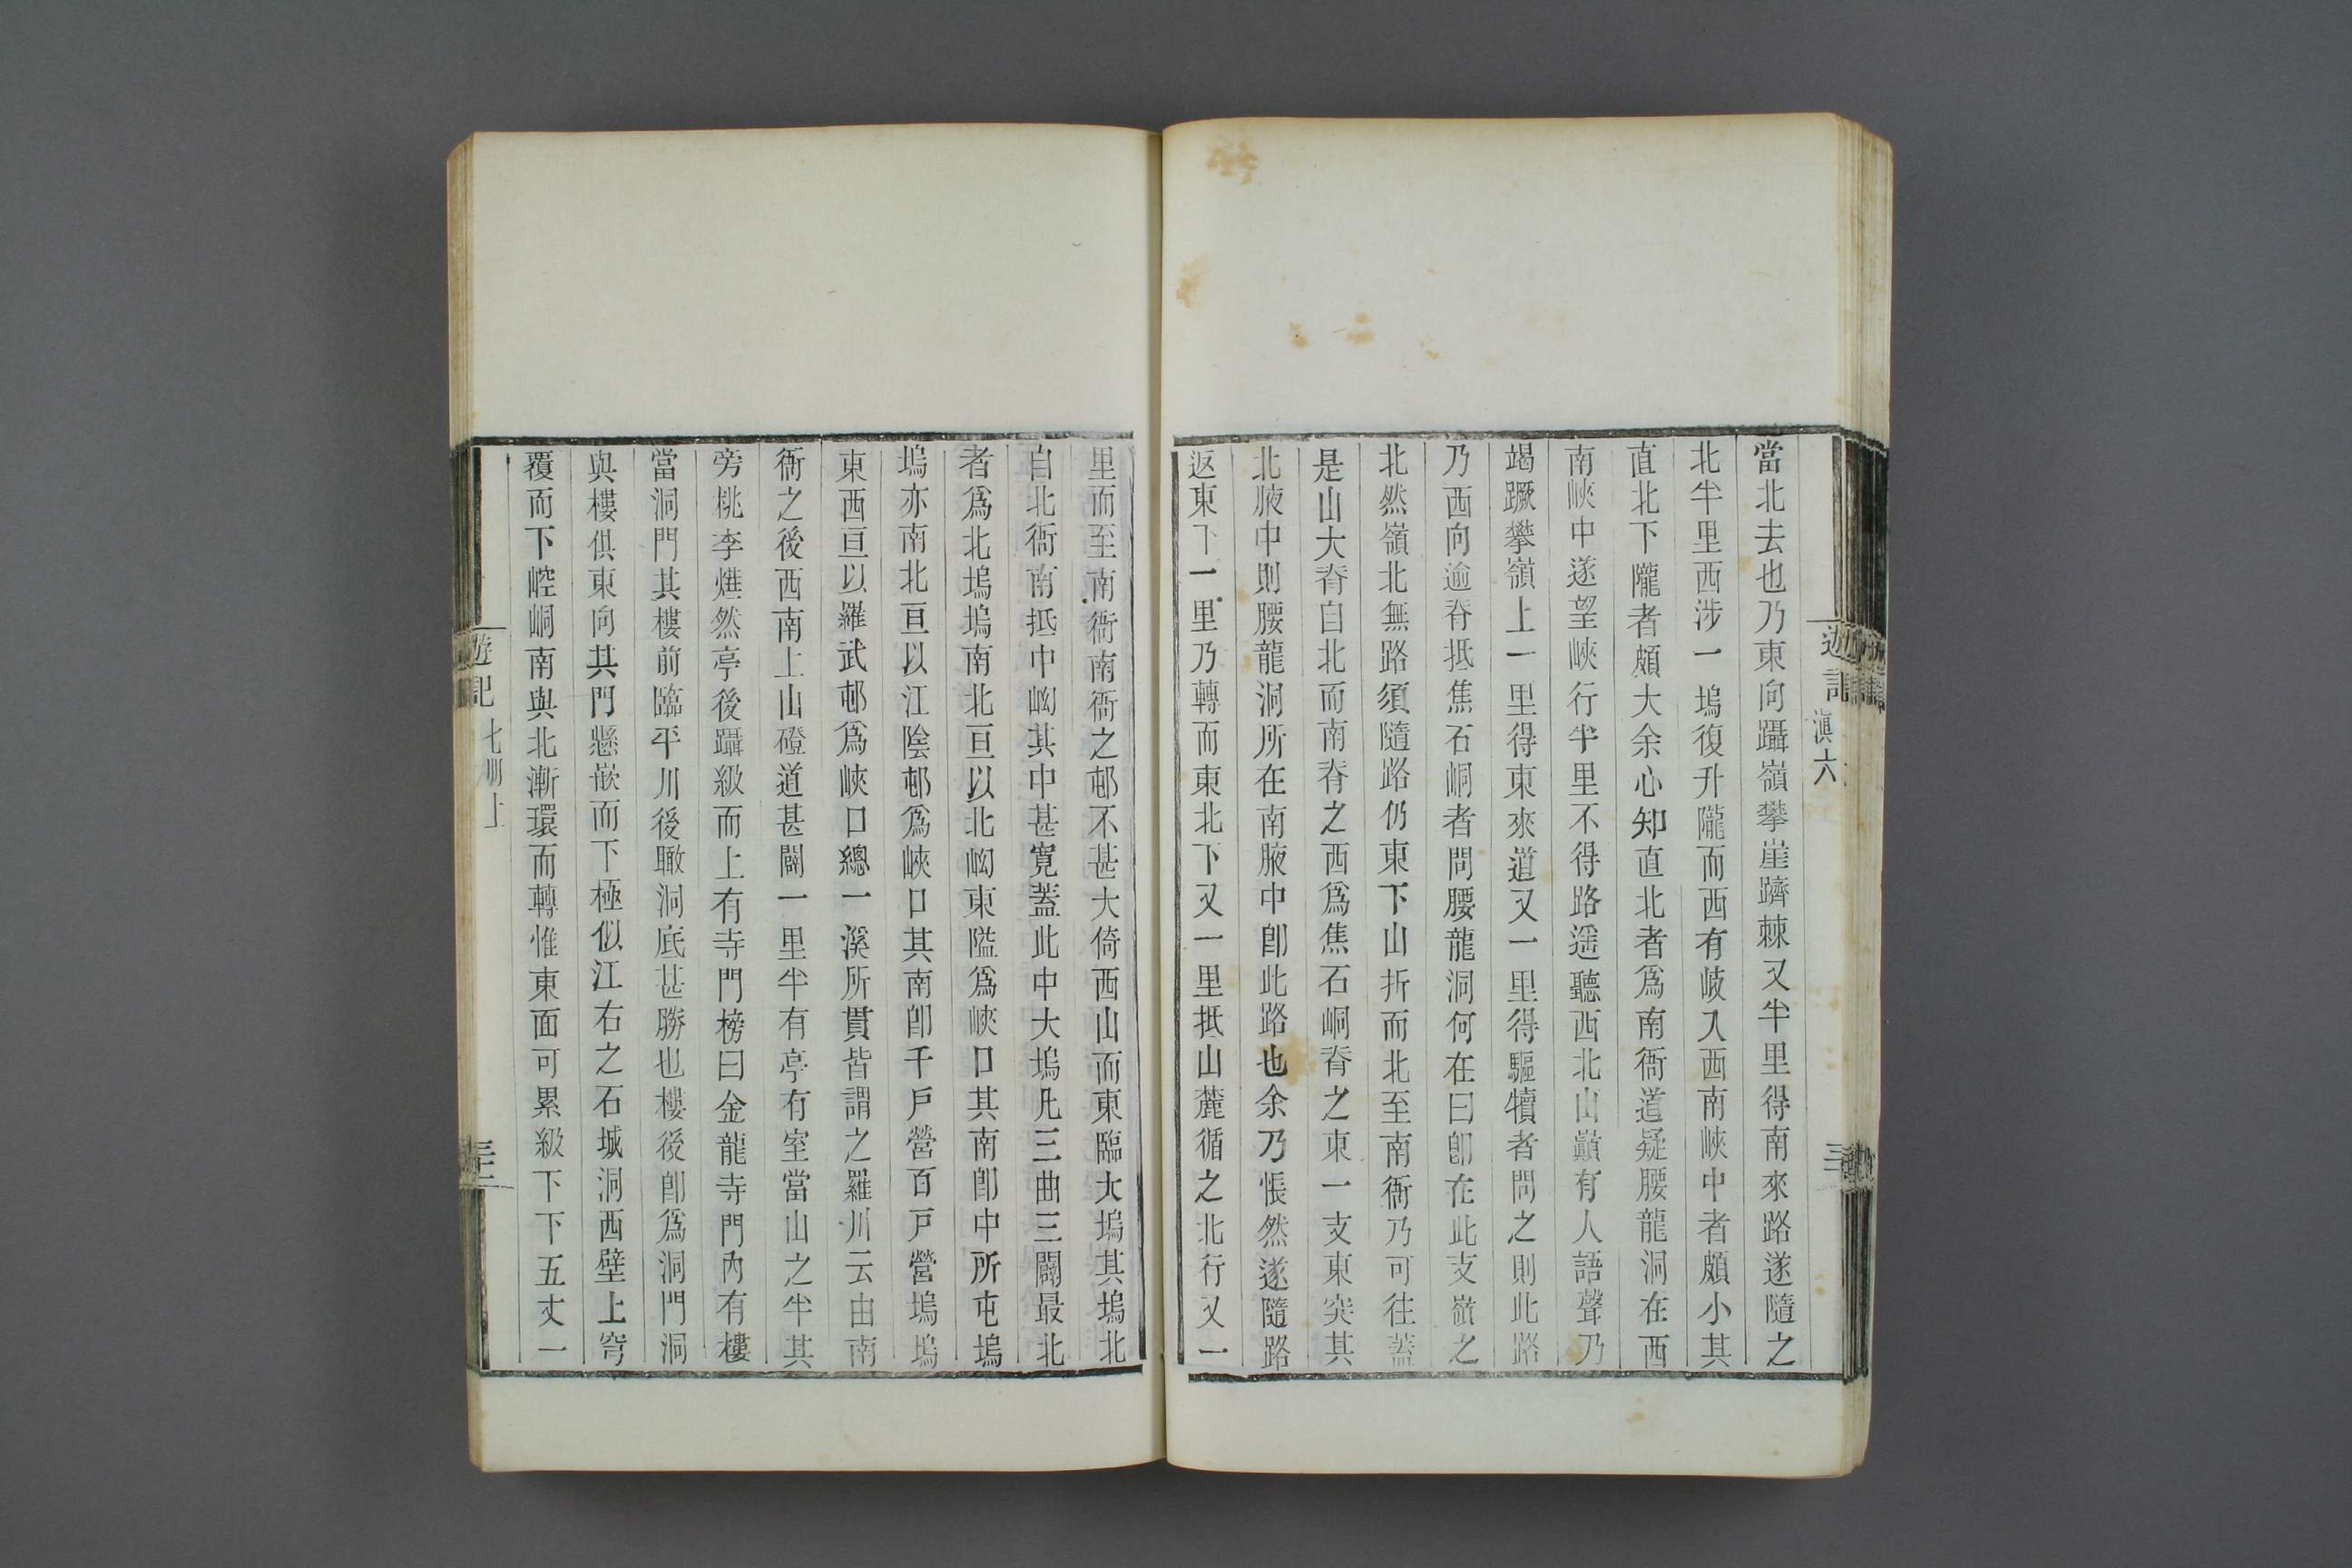 遊記
滇六
三
當北去也乃東向躡嶺攀崖躋棘又半里得南來路遂隨之
北半里西涉一塢復升隴而西有岐入西南峽中者頗小其
直北下隴者頗大余心知直北者爲南衙道疑腰龍洞在西
南峽中遂望峽行半里不得路遥聽西北山巔有人語聲乃
竭蹶攀嶺上一里得東來道又一里得驅犢者問之則此路
乃西向逾脊抵焦石峒者問腰龍洞何在曰卽在此支嶺之
北然嶺北無路須隨路仍東下山折而北至南衙乃可往蓋
是山大脊自北而南脊之西爲焦石峒脊之東一支東突其
北腋中則腰龍洞所在南腋中卽此路也余乃悵然遂隨路
返東下一里乃轉而東北下又一里抵山麓循之北行又一
里而至南衙南衙之邨不甚大倚西山而東臨大塢其塢北
自北衙南抵中㘭其中甚寬蓋此中大塢凡三曲三闢最北
者爲北塢塢南北亘以北㘭東隘爲峽口其南卽中所屯塢
塢亦南北亘以江陰邨爲峽口其南卽千戶營百戶營塢塢
東西亘以羅武邨爲峽口總一溪所貫皆謂之羅川云由南
衙之後西南上山磴道甚闢一里半有亭有室當山之半其
旁桃李燁然亭後躡級而上有寺門榜曰金龍寺門內有樓
當洞門其樓前臨平川後瞰洞底甚勝也樓後卽爲洞門洞
與樓俱東向其門懸嵌而下極似江右之石城洞西壁上穹
覆而下崆峒南與北漸環而轉惟東面可累級下下五丈一
遊記
七冊上